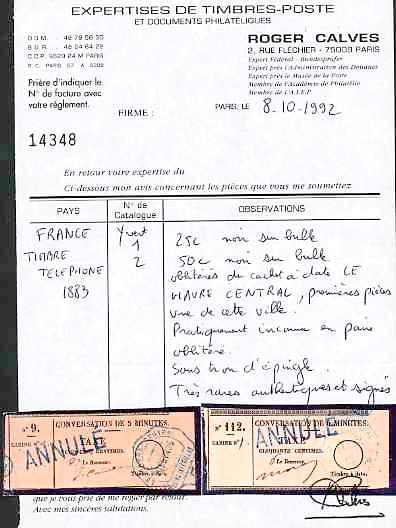 EXPERTISES DE TIMBRES-POSTE
ET DOCUMENTS PHILATÉLIQUES
ROGER CALVES
2, RUE FLÉCHIER - 75009 PARIS
Expert Fédéral - Bundesprüfer
Expert près l'Administration des Douanes
Expert près le Musée de la Poste
Membre de l'Académie de Philatélie
Membre de l'A.I.E.P.
Prière d'indiquer le
N° de facture avec
votre règlement.
FIRME :
PARIS, LE 8.10-1992
14348
En retour votre expertise du
Ci-dessous mon avis concernant les pièces que vous me soumettez
PAYS
N° de Catalogue
OBSERVATIONS
FRANCE
TIMBRE
TELEPHONE
1883
Yvert
1
2
25c noir sur bulle
50c noir sur bulle
oblitérés du cachet à date LE
HAVRE CENTRAL, premières pièces
vue de cette ville.
Pratiquement inconnu en paire
oblitéré.
Sans trou d'épingle.
Très rares authentiques et signés
N° 9. CONVERSATION DE 5 MINUTES.
TAXE
CENTIMES.
Le Receveur
Timbre à date.
ANNULÉ
N° 112. CONVERSATION DE 5 MINUTES.
TAXE
CINQUANTE CENTIMES.
Le Receveur
Timbre à date.
ANNULÉ
que je vous prie de me régler par retour.
Avec mes sincères salutations.